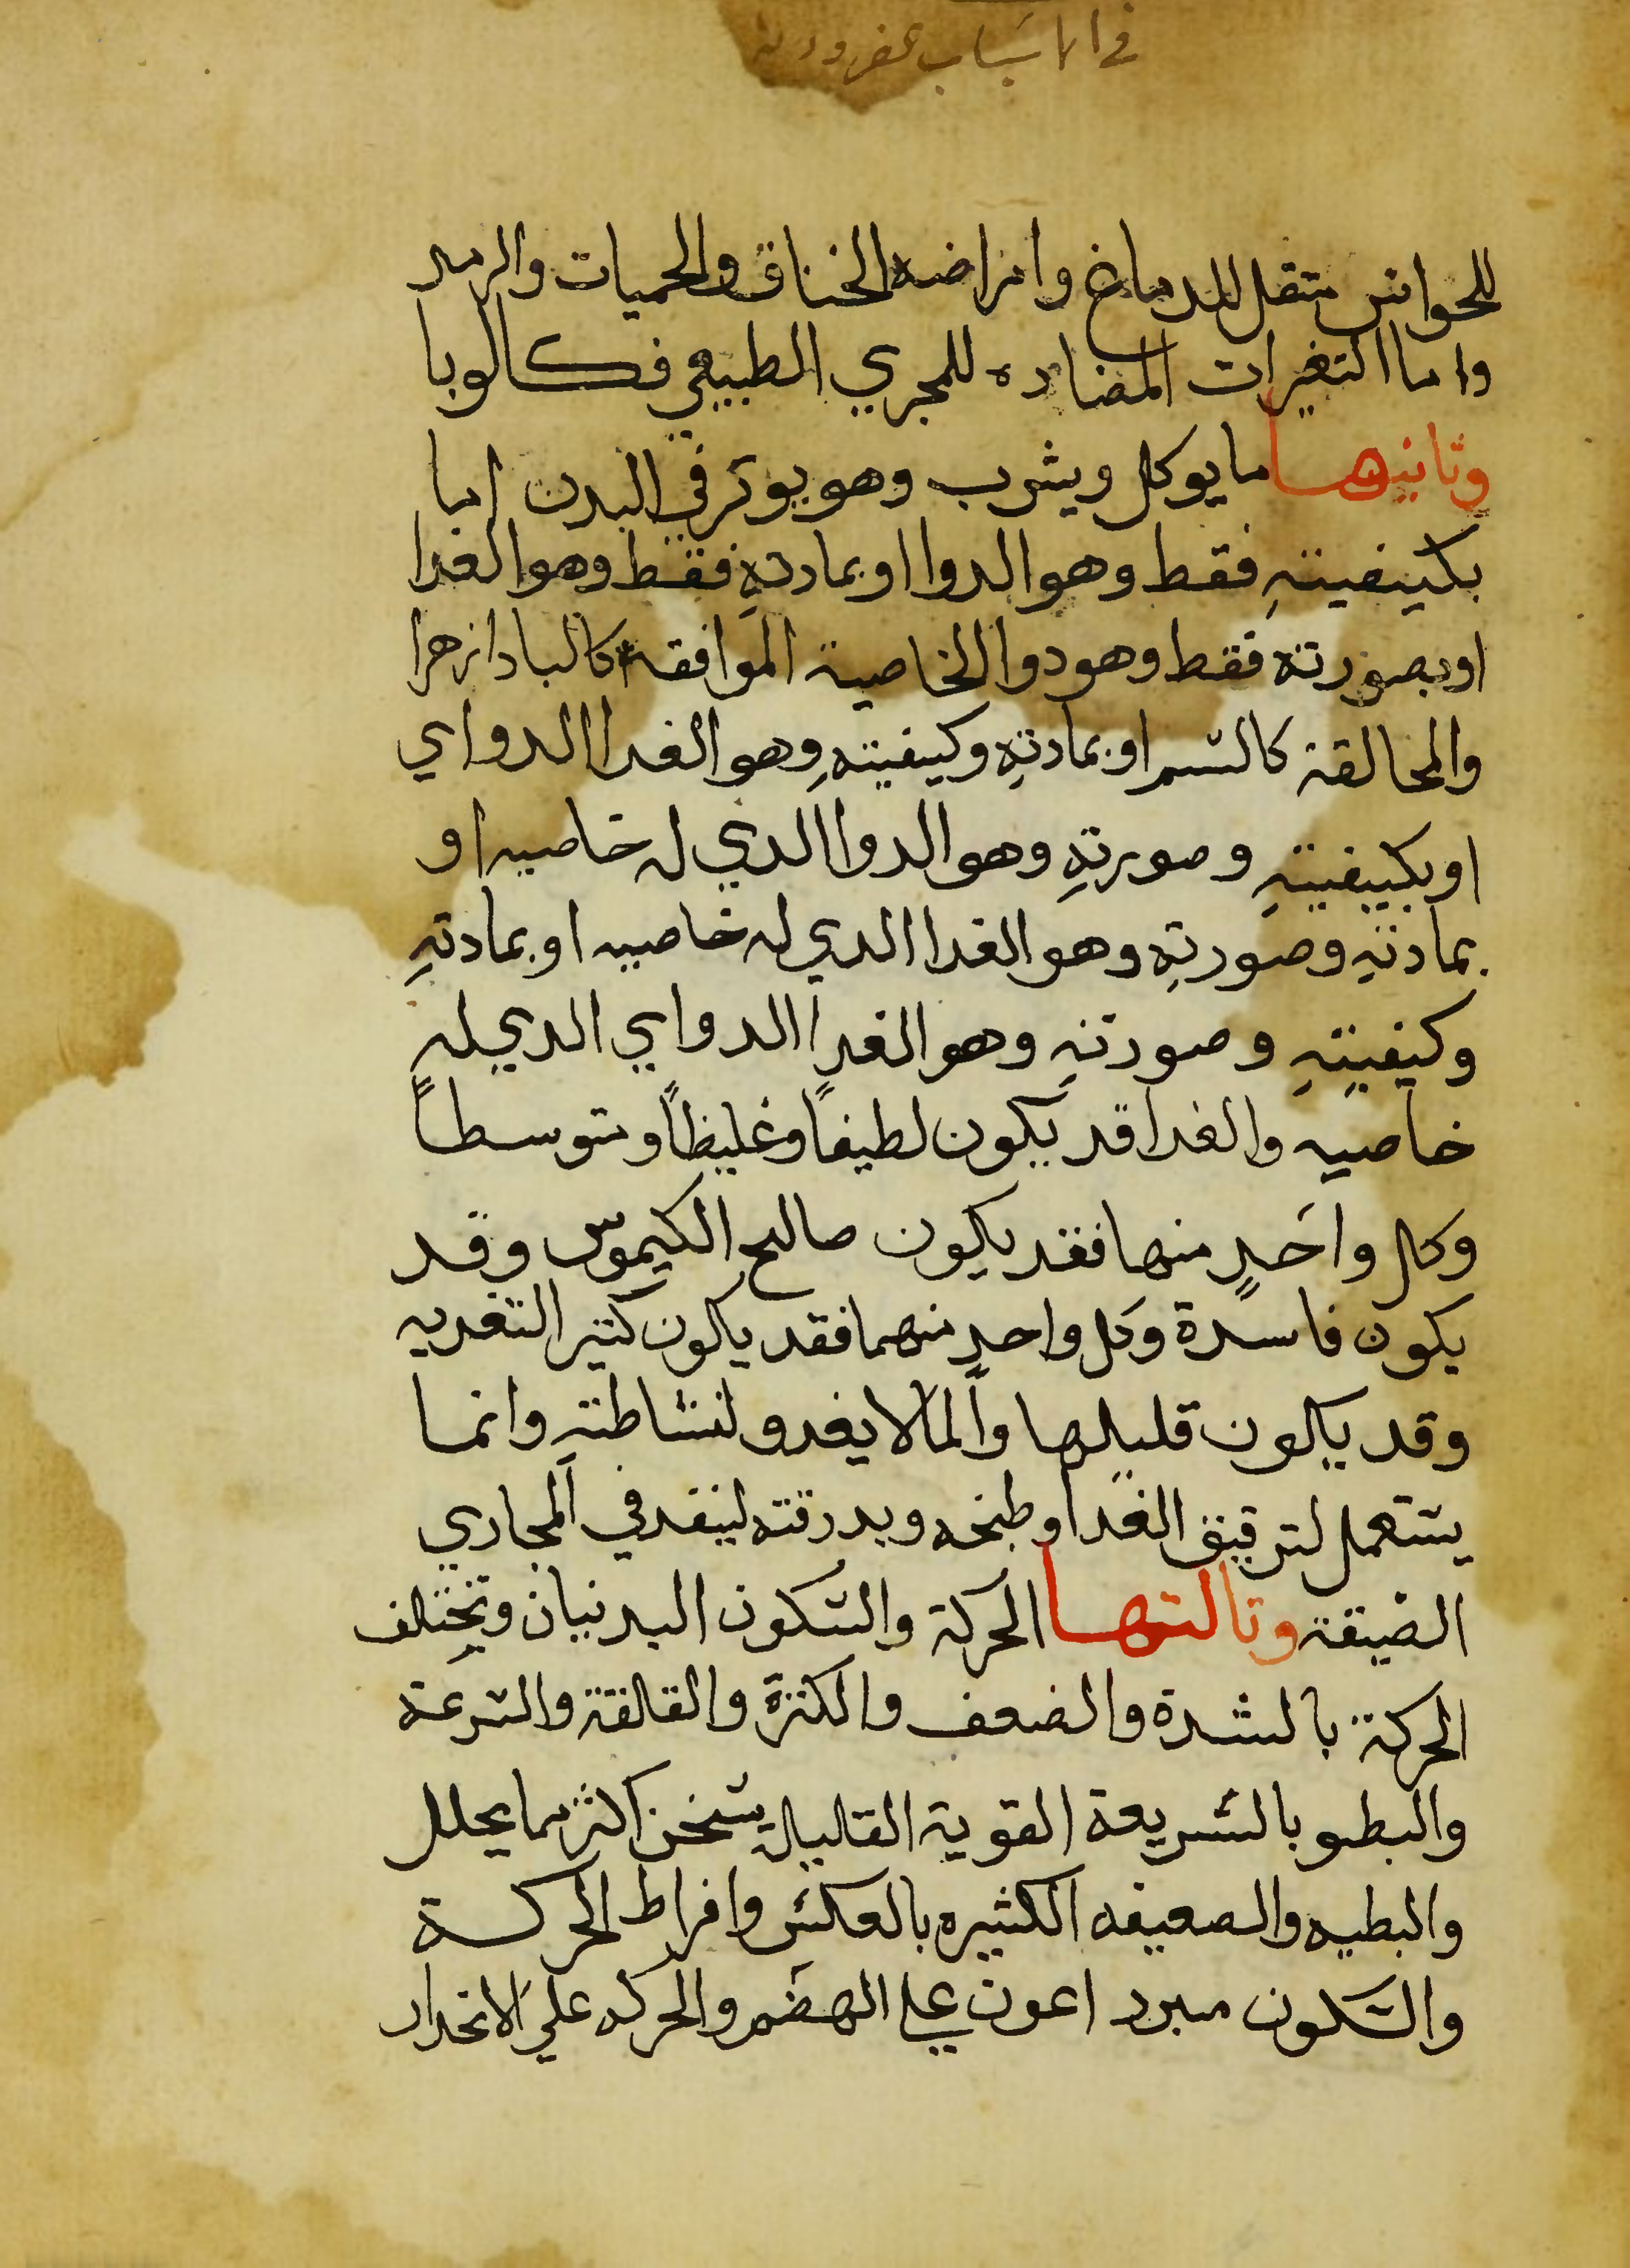 في الاسباب
للحواس متقل للدماغ وامراضه الخناق والحميات والرمد
واما التغيرات المضاده للمجري الطبيعي فكالوبا
وتانيها ما يوكل ويشرب وهو يوتر في البدن اما
بكيفيتهِ فقط وهو الدوا او بمادتهِ فقط وهو الغدا
او بصورته فقط وهو دوا الخاصية الموافقه كالبادازهرا
والمخالفة كالسم او بمادتهِ وكيفيتهِ وهو الغدا الدواي
او بكيفيتهِ وصورتهِ وهو الدوا الدي له خاصيه او
بمادتهِ وصورتهِ وهو الغدا الدي له خاصيه او بمادتهِ
وكيفيتهِ وصورتهِ وهو الغدا الدواي الدي له
خاصيه والغدا قد يكون لطيفاً وغليظاً ومتوسطاً
وكل واحدٍ منها فقد يكون صالح الكيموس وقد
يكون فاسدة وكل واحدٍ منهما فقد يكون كتير التغديه
وقد يكون قليلها والما لا يغدو لنشاطته وانما
يستعمل لترقيق الغدا وطبخه وبدرقته لينفد في المجاري
الضيقة وتالتها الحركة والسكون البدنيان وتختلف
الحركة بالشدة والضعف والكترة والقالقة والسرعة
والبطو بالسريعة القوية القليلة يسخن اكثر مما يحلل
والبطيه والصعيفه الكثيره بالعكس وافراط الحركة
والسكون مبرد اعون علي الهضم والحركه علي الانحدار